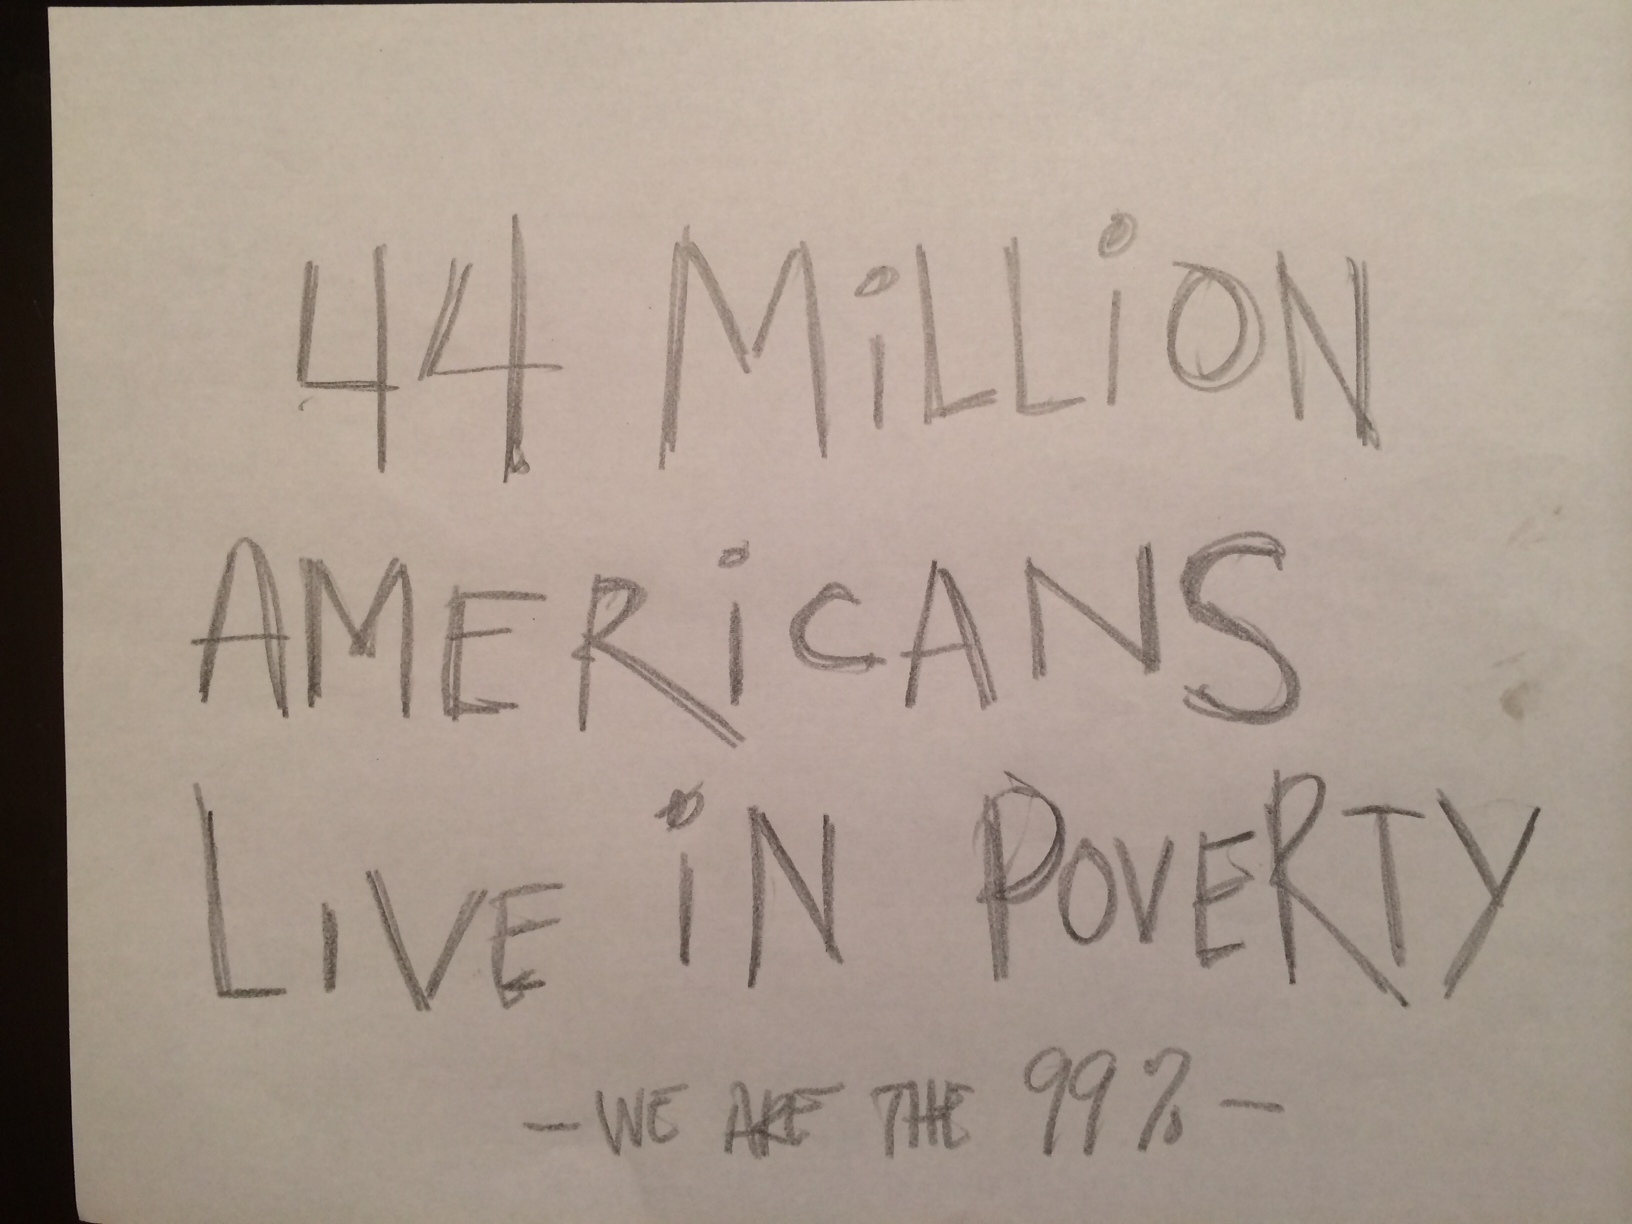 44 MiLLiON
AMERiCANS
LiVE iN POVERTY
- WE ARE THE 99% -